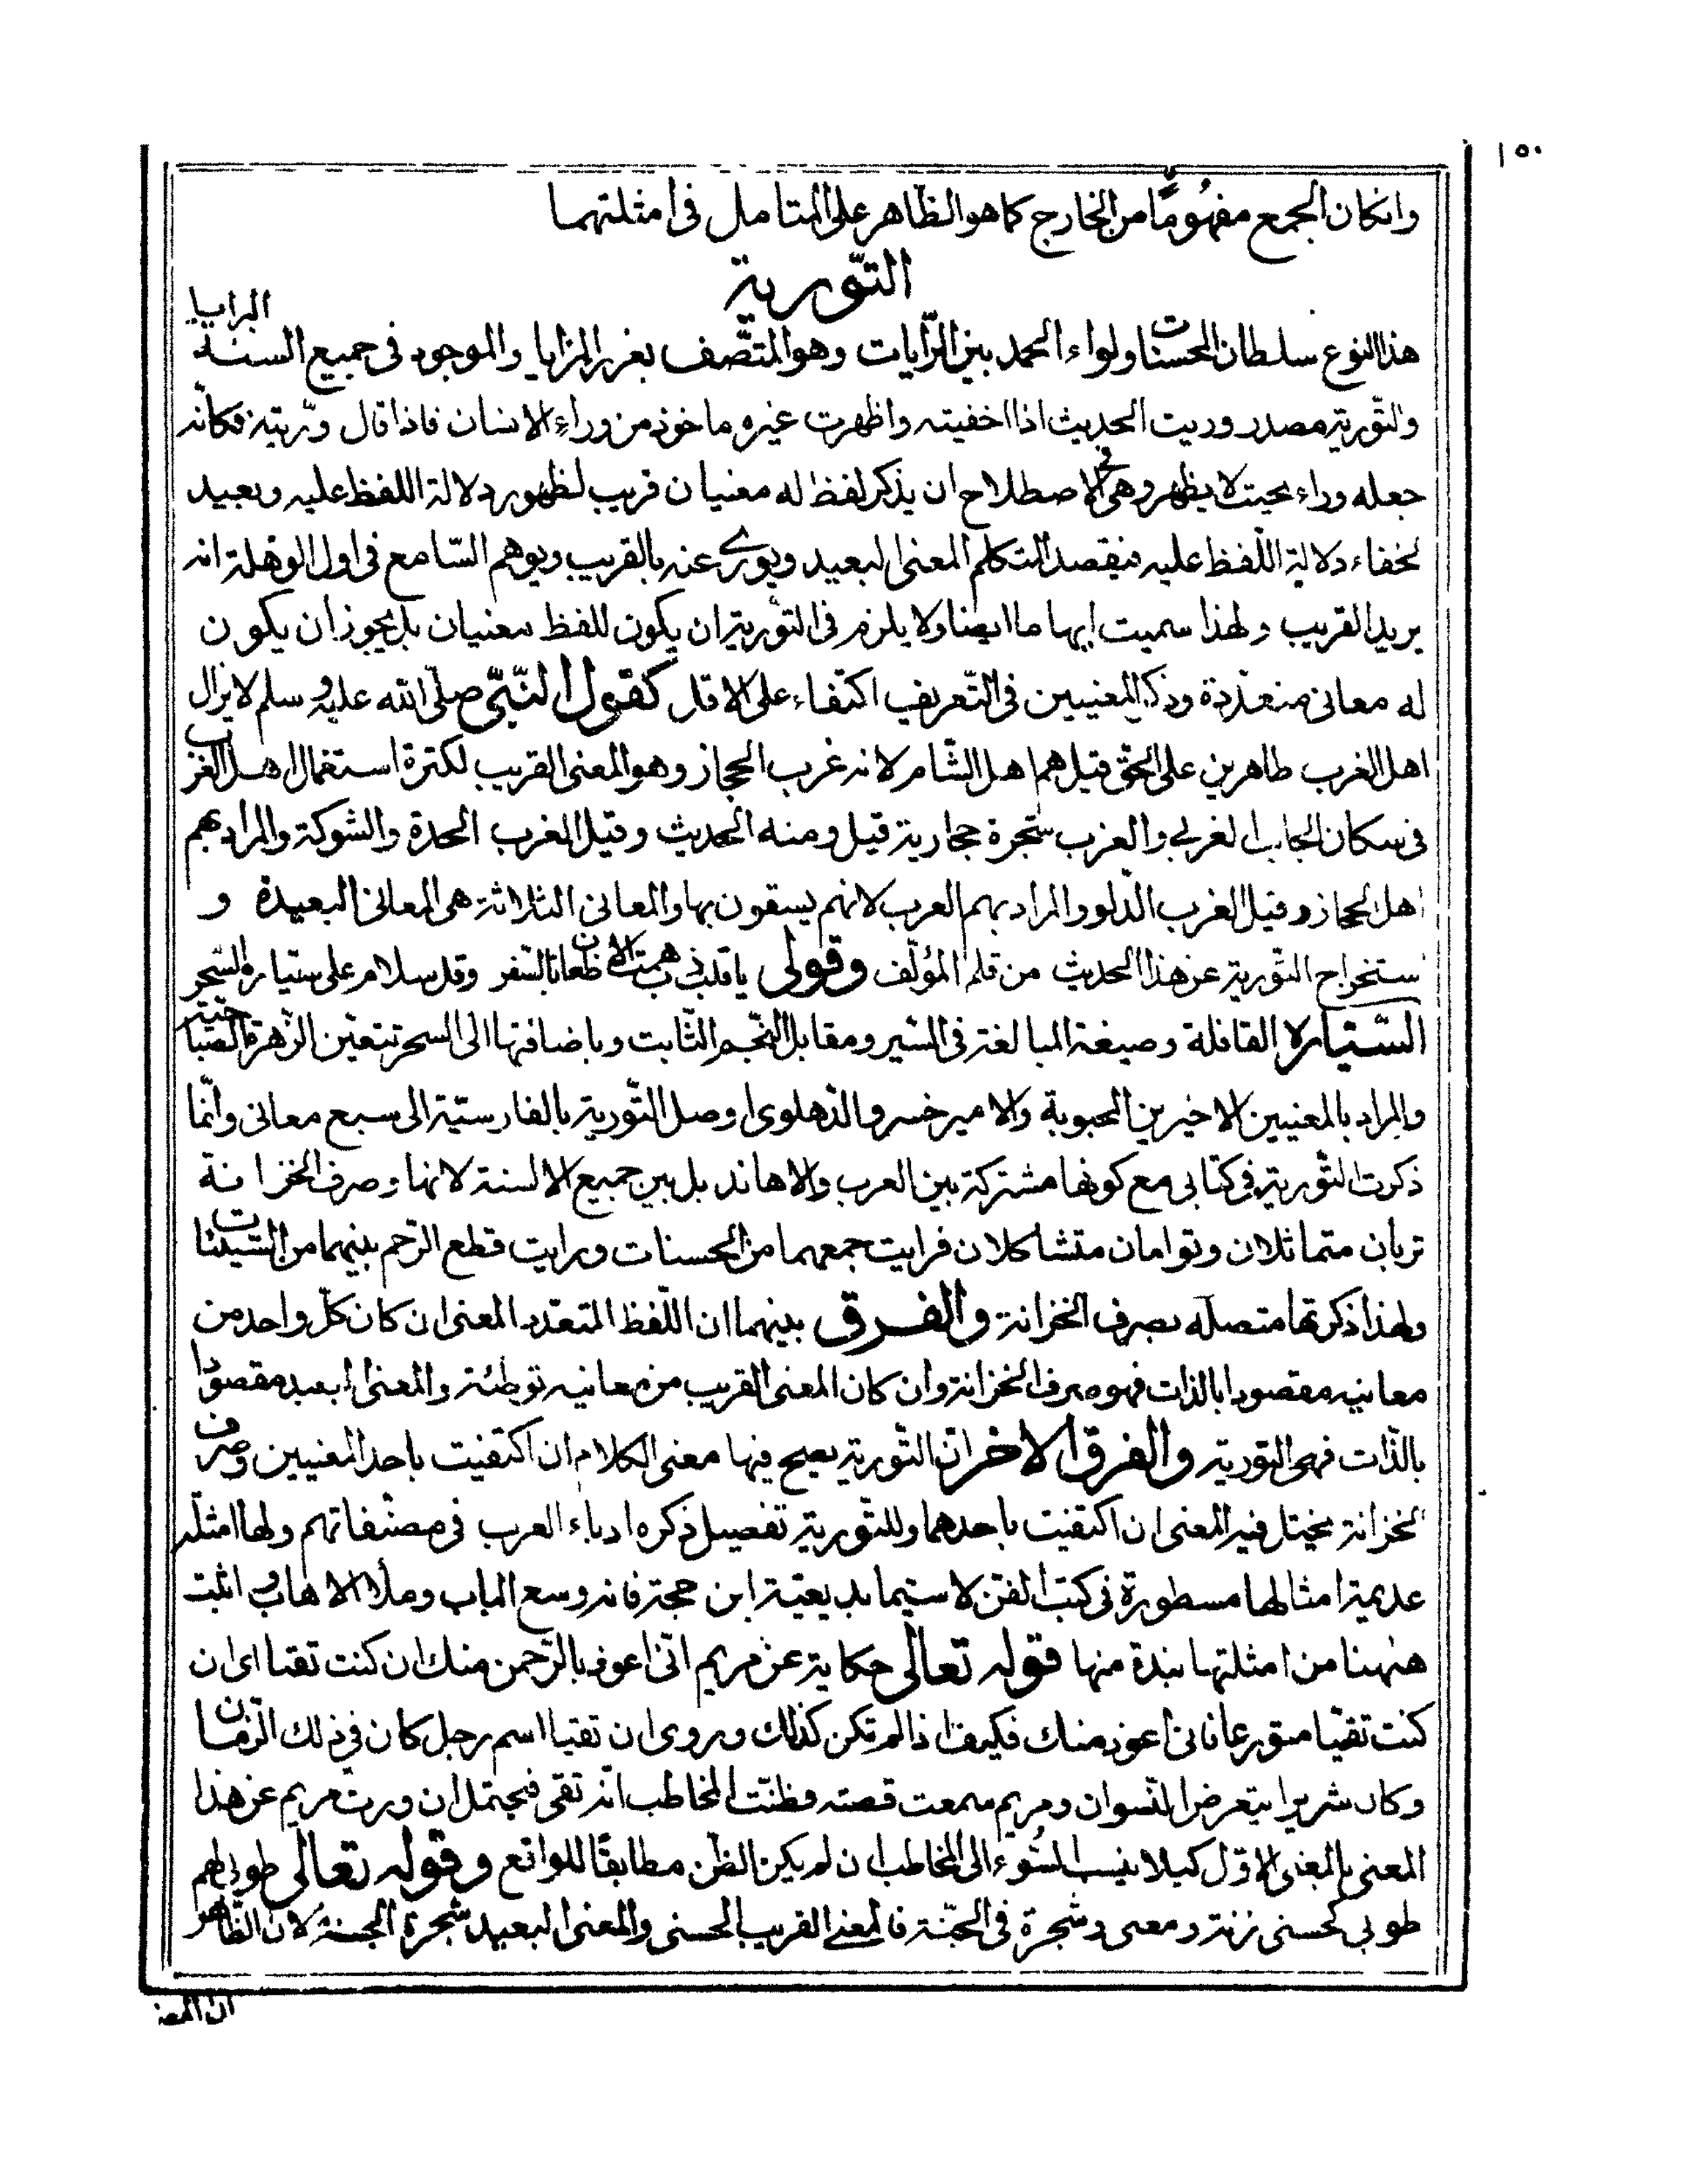 ١٥٠
وانكان الجمع مفهومًا من الخارج كما هو الظاهر على المتامل فى امثلتهما
التّورية
هذا النوع سلطان المحسنات ولواء الحمد بين الرّايات وهو المتّصف بغرر المزايا والموجود فى جميع السنة البرايا
والتّورية مصدر وريت الحديث اذا اخفيته واظهرت غيره ماخوذ من وراء الانسان فاذا قال ورّيته فكانّه
جعله وراء بحيث لا يظهر وهى فى الاصطلاح ان يذكر لفظ له معنيان قريب لظهور دلالة اللفظ عليه وبعيد
لخفاء دلالة اللّفظ عليه فيقصد المتكلم المعنى البعيد ويورى عنه بالقريب ويوهم السّامع فى اول الوهلة انه
يريد القريب ولهذا سميت ايهاما ايضا ولا يلزم فى التّورية ان يكون للفظ معنيان بل يجوز ان يكون
له معانى متعدّدة وذكر المعنيين فى التّعريف اكتفاء على الاقل كقول النّبىّ صلّى الله عليه وسلم لا يزال
اهل الغرب ظاهرين على الحق قيل هم اهل الشّام لانه غرب الحجاز وهو المعنى القريب لكثرة استعمال اهل الغرب
فى سكان الجانب الغربى والغرب شجرة حجازية قيل ومنه الحديث وقيل الغرب الحدة والشوكة والمراد بهم
اهل الحجاز وقيل الغرب الدّلو والمراد بهم العرب لانهم يسقون بها والمعانى الثلاثة هى المعانى البعيدة و
استخراج التّورية عن هذا الحديث من قلم المؤلّف وقولى يا قلب ذب همت الاظعان بالسّفر وقد سلام على سيّارة السّحر
السّيّارة القافلة وصيغة المبالغة فى السّير ومقابل النّجم الثّابت وباضافتها الى السحر تتعيّن الزّهرة الصّباحيّة
والمراد بالمعنيين الاخيرين المحبوبة والامير خسرو الدّهلوى اوصل التّورية بالفارسيّة الى سبع معانى وانّما
ذكرت التّورية فى كتابى مع كونها مشتركة بين العرب والاهاند بل بين جميع الالسنة لانها وصرف الخزانة
تربان متماثلان وتوامان متشاكلان فرايت جمعهما من الحسنات ورايت قطع الرّحم بينهما من السّيئات
ولهذا ذكرتها متصلة بصرف الخزانة والفرق بينهما ان اللّفظ المتعدّد المعنى ان كان كلّ واحد من
معانيه مقصودا بالذات فهو صرف الخزانة وان كان المعنى القريب من معانيه توطئة والمعنى البعيد مقصودا
بالذّات فهى التورية والفرق الاخر انّ التّورية يصح فيها معنى الكلام ان اكتفيت باحد المعنيين وصرف
الخزانة يختل فيه المعنى ان اكتفيت باحدهما وللتّورية تفصيل ذكره ادباء العرب فى مصنّفاتهم ولها امثلة
عديمة امثالها مسطورة فى كتب الفنّ لا سيّما بديعيّة ابن حجة فانه وسع الباب وملأ الاهاب واثبت
ههنا من امثلتها نبذة منها قوله تعالى حكاية عن مريم انّى اعوذ بالرّحمن منك ان كنت تقيا اى ان
كنت تقيّا متورعا فانى اعوذ منك فكيف اذا لم تكن كذلك وروى ان تقيا اسم رجل كان فى ذلك الزمان
وكان شريرا يتعرض النّسوان ومريم سمعت قصته فظنّت المخاطب انّه تقى فيحتمل ان ورت مريم عن هذا
المعنى بالمعنى الاوّل كيلا ينسب السّوء الى المخاطب ان لم يكن الظّن مطابقًا للواقع وقوله تعالى طوبى لهم
طوبى كحسنى زنة ومعنى وشجرة فى الجنّة فالمعنى القريب الحسنى والمعنى البعيد شجرة الجنة لان الظّاهر
ان المعنـ